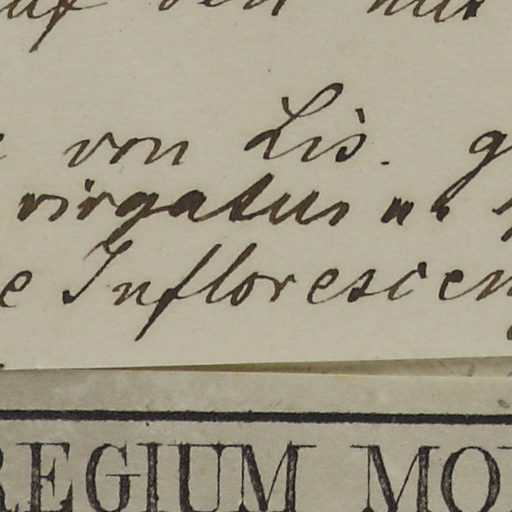 auf den
von Lis. g
virgatus u.
e Inflorescen
REGIUM MO